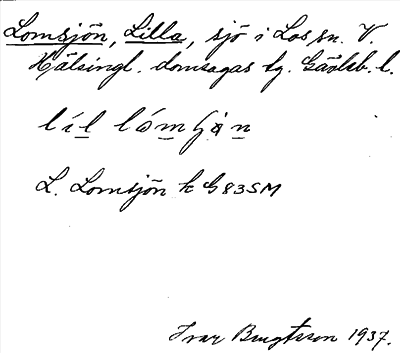 Lomsjön, Lilla, sjö i Los sn. V.
Hälsingl. domsagas tg. Gävleb. l.
lil lómʃɵn
L. Lomsjön k G83SM
Ivar Bengtsson 1937.